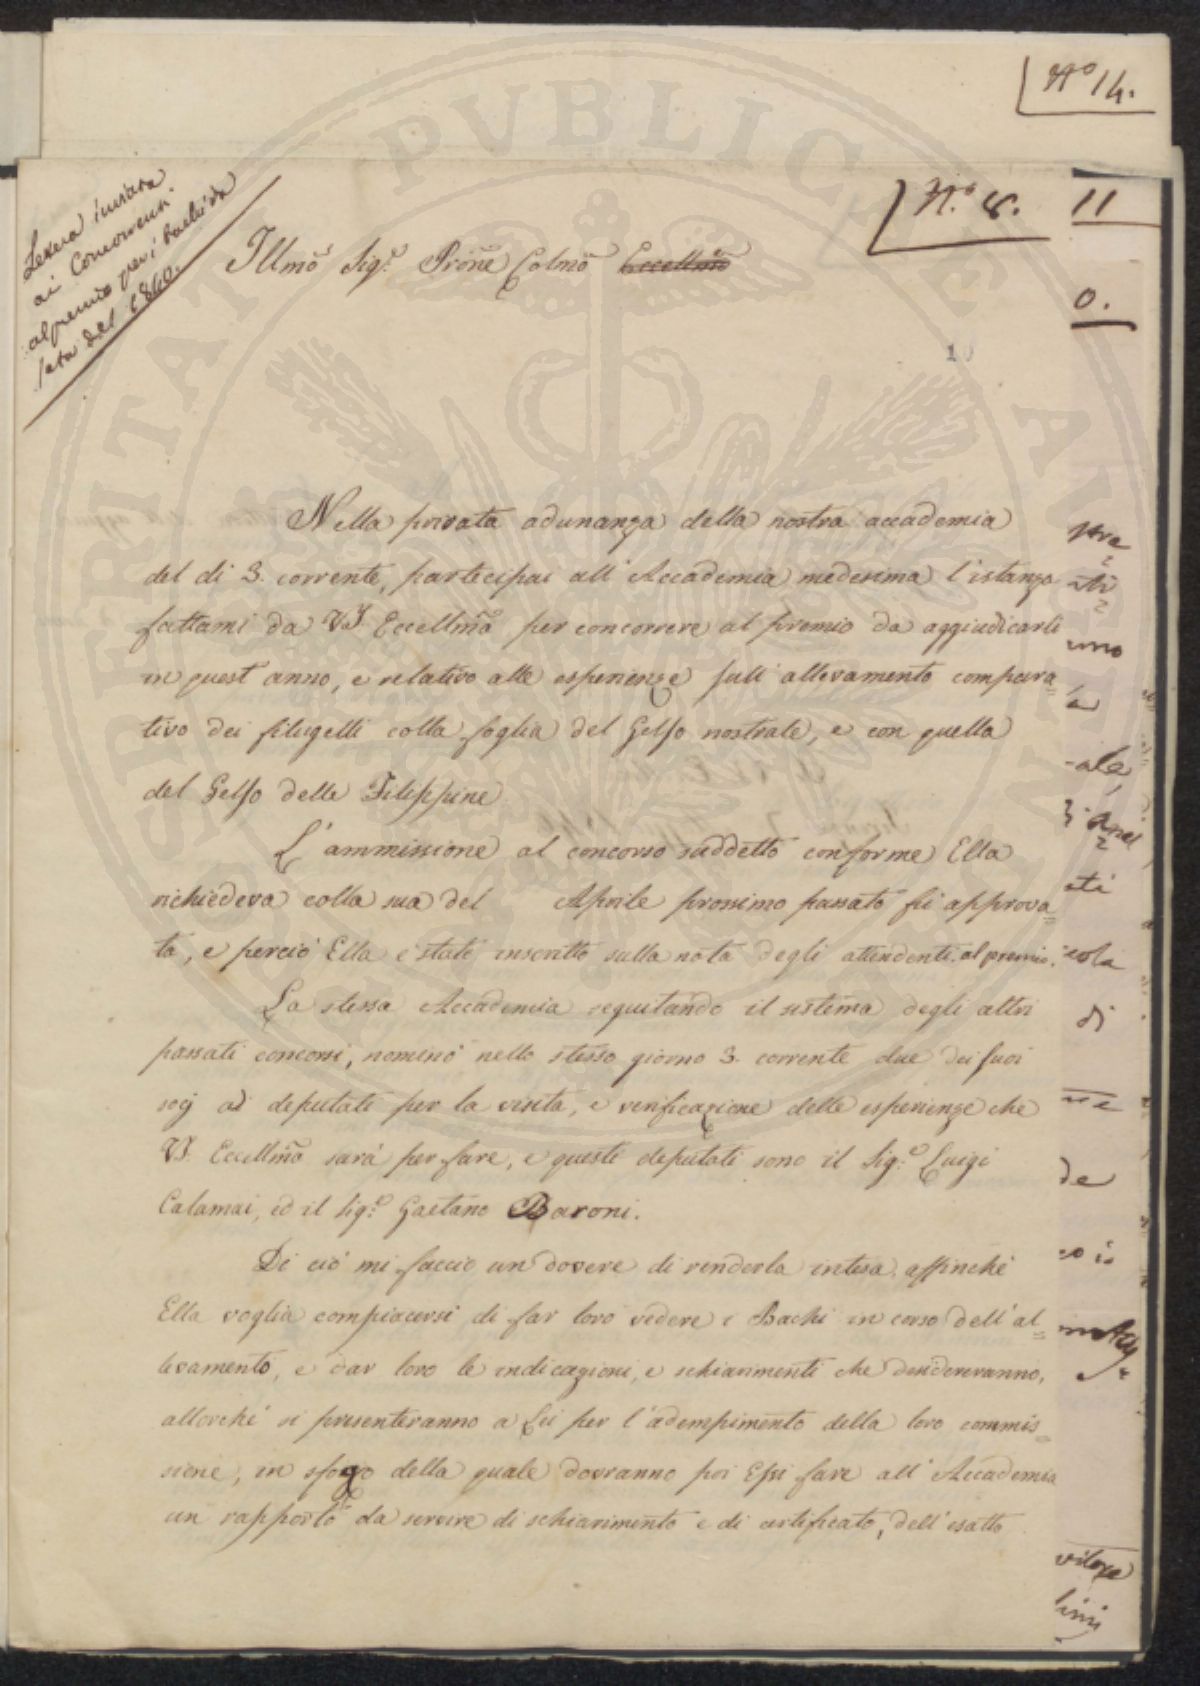 Nº 14.
Nº 8.
11
0.
Lettera inviata
ai Concorrenti
al premio per i bachi da
seta del 1840.
Illmõ Sig.e Prõne Colmõ Eccellmõ
10
Nella privata adunanza della nostra accademia
del di 3. corrente, partecipai all'Accademia medesima l'istanza
fattami da VS. Eccellmã per concorrere al premio da aggiudicarsi
in quest'anno, e relativo alle esperienze sull'allevamento compara=
tivo dei filugelli colla foglia del Gelso nostrale, e con quella
del Gelso delle Fileppine
L'ammissione al concorso suddetto conforme Ella
richiedeva colla sua del Aprile prossimo passato fù approva=
ta, e perciò Ella è stati inscritto sulla nota degli attendenti al premio.
La stessa Accademia seguitando il sistema degli altri
passati concorsi, nominò nello stesso giorno 3. corrente due dei suoi
socj a deputati per la visita, e verificazione delle esperienze che
VS. Eccellmã sarà per fare, e questi deputati sono il Sig.e Luigi
Calamai, ed il Sig.e Gaetano Baroni.
Di ciò mi faccio un dovere di renderla intesa affinchè
Ella voglia compiacersi di far loro vedere i Bachi in corso dell'al=
levamento, e dar loro le indicazioni, e schiarimenti che desidereranno,
allorchè si presenteranno a Lei per l'adempimento della loro commis=
sione, in sfogo della quale dovranno poi Essi fare all'Accademia
un rapporto da servire di schiarimento e di certificato, dell'esatto
uno
ale,
ati
cola
di
de